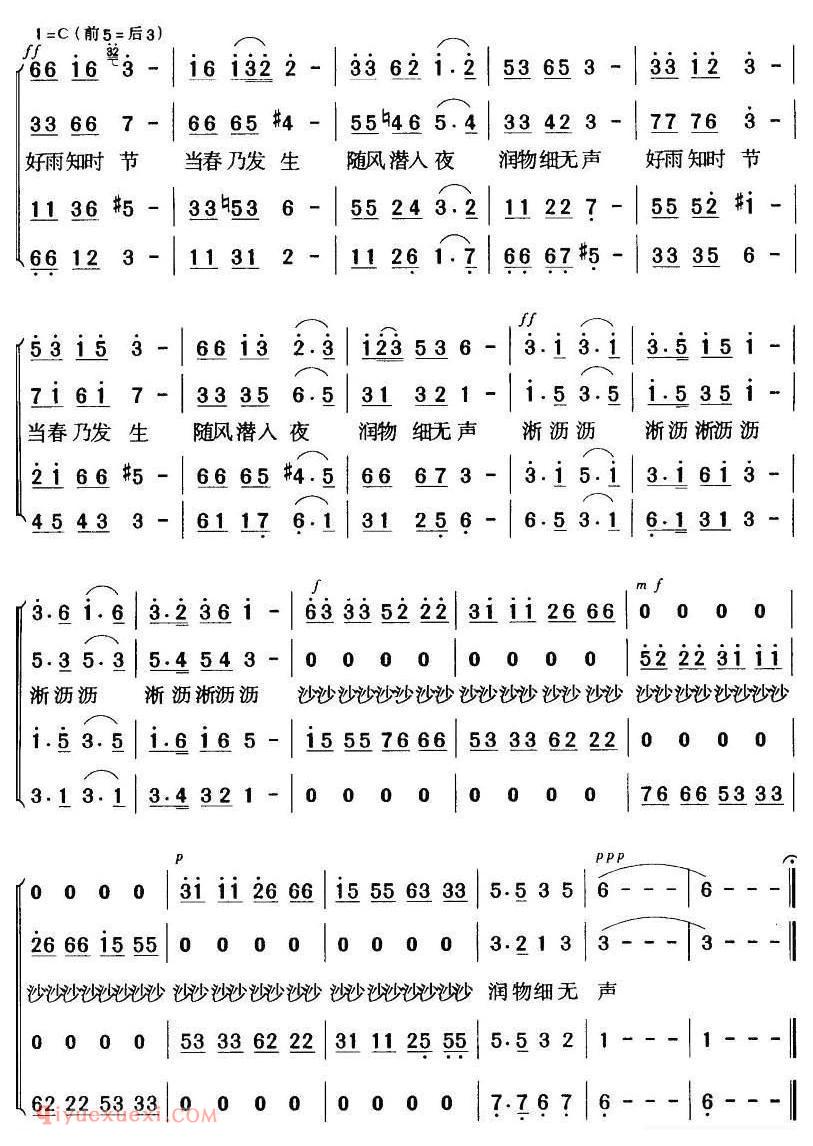 1=C(前5=后3)
ff 66 i6 32 3 - | i6 i32 2 - | 33 62 i.2 | 53 65 3 - | 33 i2 3 - |
33 66 7 - | 66 65 #4 - | 55 ♮46 5.4 | 33 42 3 - | 77 76 3 - |
好雨知时 节 当春乃发 生 随风潜入 夜 润物细无 声 好雨知时 节
11 36 #5 - | 33 ♮53 6 - | 55 24 3.2 | 11 22 7 - | 55 52 #i - |
66 12 3 - | 11 31 2 - | 11 26 1.7 | 66 67 #5 - | 33 35 6 - |
ff
53 i5 3 - | 66 i3 2.3 | i23 53 6 - | 3.i 3.i | 3.5 i5 i - |
7i 6i 7 - | 33 35 6.5 | 31 32 1 - | i.5 3.5 | i.5 35 i - |
当春乃发 生 随风潜入 夜 润物 细无 声 淅 沥沥 淅 沥淅沥 沥
2i 66 #5 - | 66 65 #4.5 | 66 67 3 - | 3.i 5.i | 3.i 6i 3 - |
45 43 3 - | 61 17 6.1 | 31 25 6 - | 6.5 3.1 | 6.1 31 3 - |
f mf
3.6 i.6 | 3.2 36 i - | 63 33 52 22 | 3i ii 26 66 | 0 0 0 0 |
5.3 5.3 | 5.4 54 3 - | 0 0 0 0 | 0 0 0 0 | 52 22 3i ii |
淅 沥沥 淅 沥淅沥沥 沙沙沙沙沙沙沙沙 沙沙沙沙沙沙沙沙 沙沙沙沙沙沙沙沙
i.5 3.5 | i.6 i6 5 - | i5 55 76 66 | 53 33 62 22 | 0 0 0 0 |
3.1 3.1 | 3.4 32 1 - | 0 0 0 0 | 0 0 0 0 | 76 66 53 33 |
p ppp
0 0 0 0 | 3i ii 26 66 | i5 55 63 33 | 5.5 3 5 | 6 - - - | 6 - - ‖
26 66 i5 55 | 0 0 0 0 | 0 0 0 0 | 3.2 1 3 | 3 - - - | 3 - - ‖
沙沙沙沙沙沙沙沙 沙沙沙沙沙沙沙沙 沙沙沙沙沙沙沙沙 润物细无 声
0 0 0 0 | 53 33 62 22 | 31 11 25 55 | 5.5 3 2 | 1 - - - | 1 - - ‖
62 22 53 33 | 0 0 0 0 | 0 0 0 0 | 7.7 6 7 | 6 - - - | 6 - - ‖
Qiyuexuexi.com